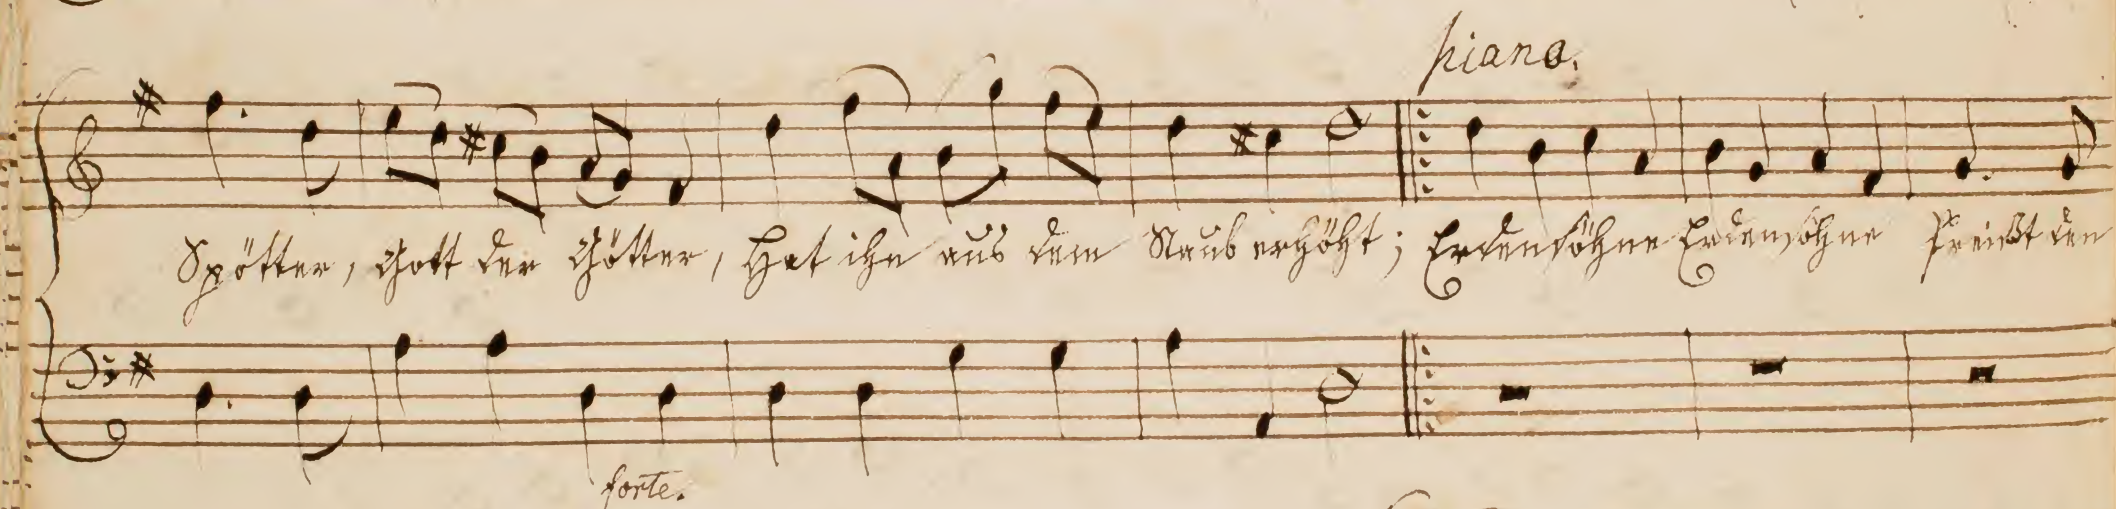 piano.
Spötter, Gott der Götter, Hat ihn aus dem Staub erhöht; Erdensöhne Erdensöhne Preißt den
forte.